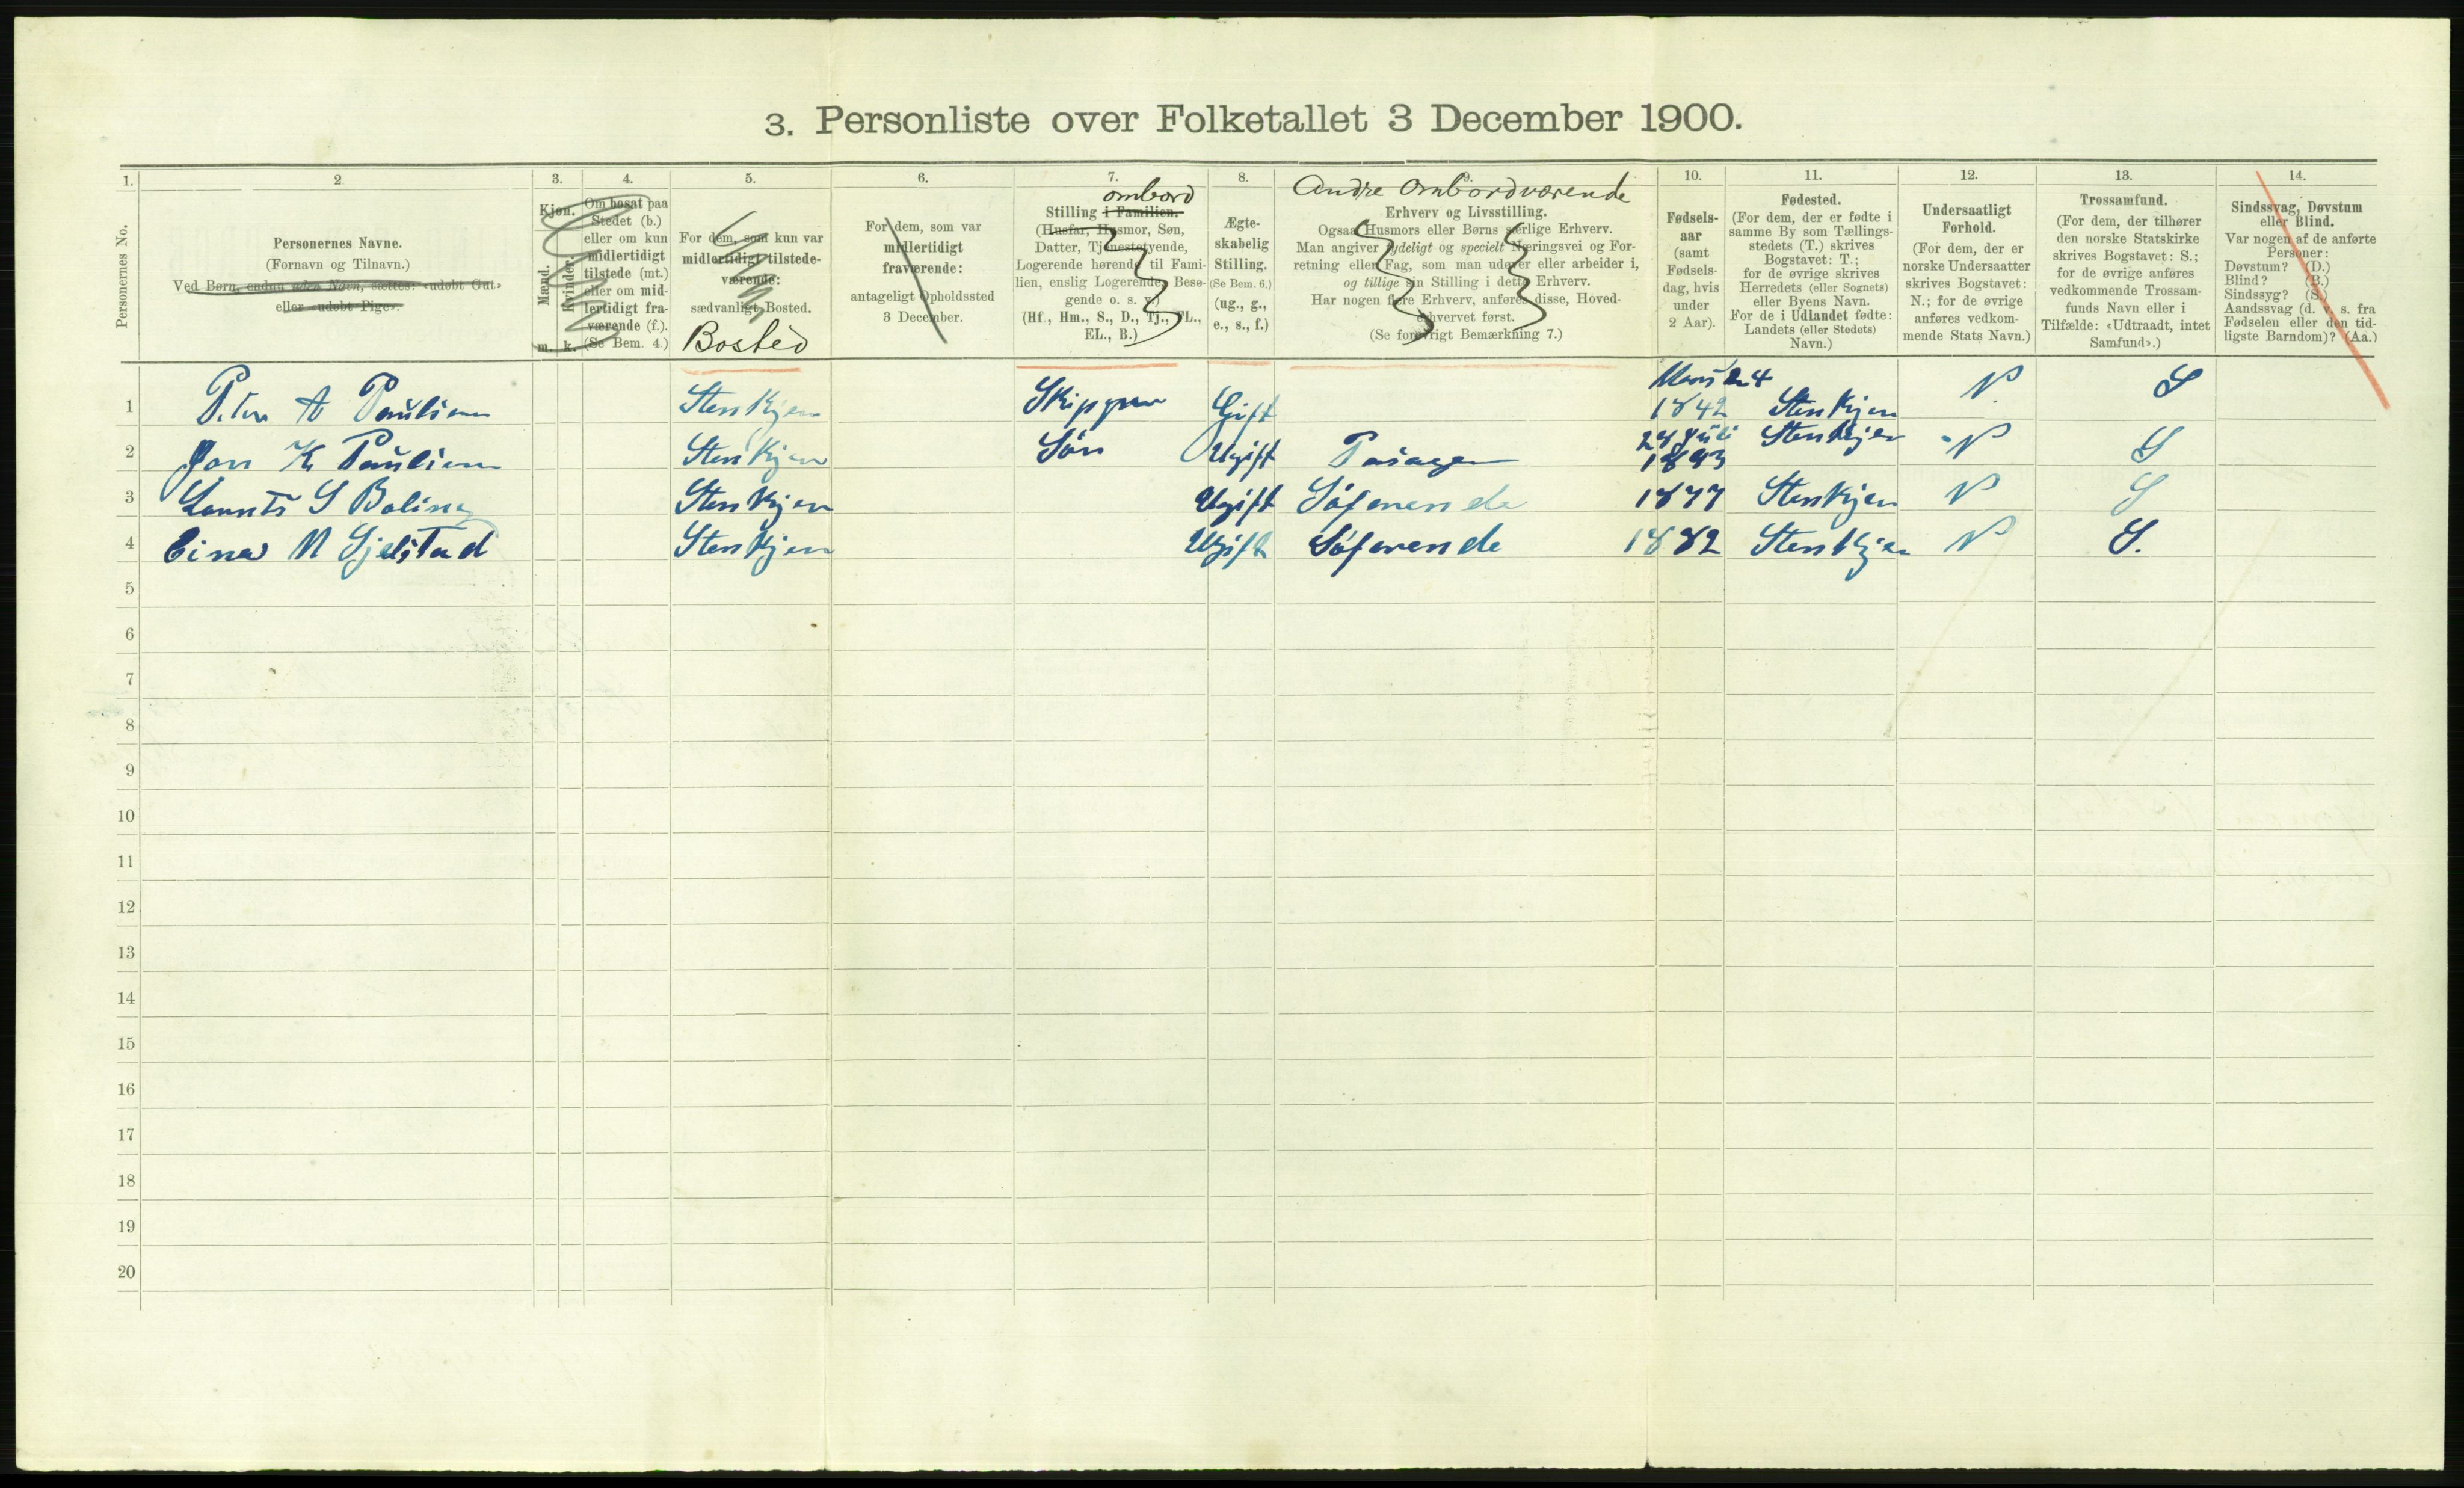 3. Personliste over Folketallet 3 December 1900.
1. 2. 3. 4. 5. 6. 7. 8. 9. 10. 11. 12. 13. 14.
Personernes No.
Personernes Navne.
(Fornavn og Tilnavn.)
Ved Børn, endnu uden Navn, sættes: «udøbt Gut»
eller «udøbt Pige».
Kjøn.
Mænd.
Kvinder.
m. k.
Om bosat paa
Stedet (b.)
eller om kun
midlertidigt
tilstede (mt.)
eller om mid-
lertidigt fra-
værende (f.).
(Se Bem. 4.)
For dem, som kun var
midlertidigt tilstede-
værende:
sædvanligt Bosted.
Bosted
For dem, som var
midlertidigt
fraværende:
antageligt Opholdssted
3 December.
ombord
Stilling i Familien.
(Husfar, Husmor, Søn,
Datter, Tjenestetyende,
Logerende hørende til Fami-
lien, enslig Logerende, Besø-
gende o. s. v.)
(Hf., Hm., S., D., Tj., FL.,
EL., B.)
Ægte-
skabelig
Stilling.
(Se Bem. 6.)
(ug., g.,
e., s., f.)
Andre Ombordværende
Erhverv og Livsstilling.
Ogsaa Husmors eller Børns særlige Erhverv.
Man angiver tydeligt og specielt Næringsvei og For-
retning eller Fag, som man udøver eller arbeider i,
og tillige sin Stilling i dette Erhverv.
Har nogen flere Erhverv, anføres disse, Hoved-
erhvervet først.
(Se forøvrigt Bemærkning 7.)
Fødsels-
aar
(samt
Fødsels-
dag, hvis
under
2 Aar).
Fødested.
(For dem, der er fødte i
samme By som Tællings-
stedets (T.) skrives
Bogstavet: T.;
for de øvrige skrives
Herredets (eller Sognets)
eller Byens Navn.
For de i Udlandet fødte:
Landets (eller Stedets)
Navn.)
Undersaatligt
Forhold.
(For dem, der er
norske Undersaatter
skrives Bogstavet:
N.; for de øvrige
anføres vedkom-
mende Stats Navn.)
Trossamfund.
(For dem, der tilhører
den norske Statskirke
skrives Bogstavet: S.;
for de øvrige anføres
vedkommende Trossam-
funds Navn eller i
Tilfælde: «Udtraadt, intet
Samfund».)
Sindssvag, Døvstum
eller Blind.
Var nogen af de anførte
Personer:
Døvstum? (D.)
Blind? (B.)
Sindssyg? (S.)
Aandssvag (d. v. s. fra
Fødselen eller den tid-
ligste Barndom)? (Aa.)
1 Peter A Paulsen Stenkjer Skipper Gift 24 1842 Stenkjer N. S
2 Jon K Paulsen Stenkjer Sön Ugift Pasager 24 Juli 1893 Stenkjer N S
3 S Boling Stenkjer Ugift Söfarende 1877 Stenkjer N S
4 Einar M Gjelstad Stenkjer Ugift Söfarende 1882 Stenkjer N S.
5
6
7
8
9
10
11
12
13
14
15
16
17
18
19
20